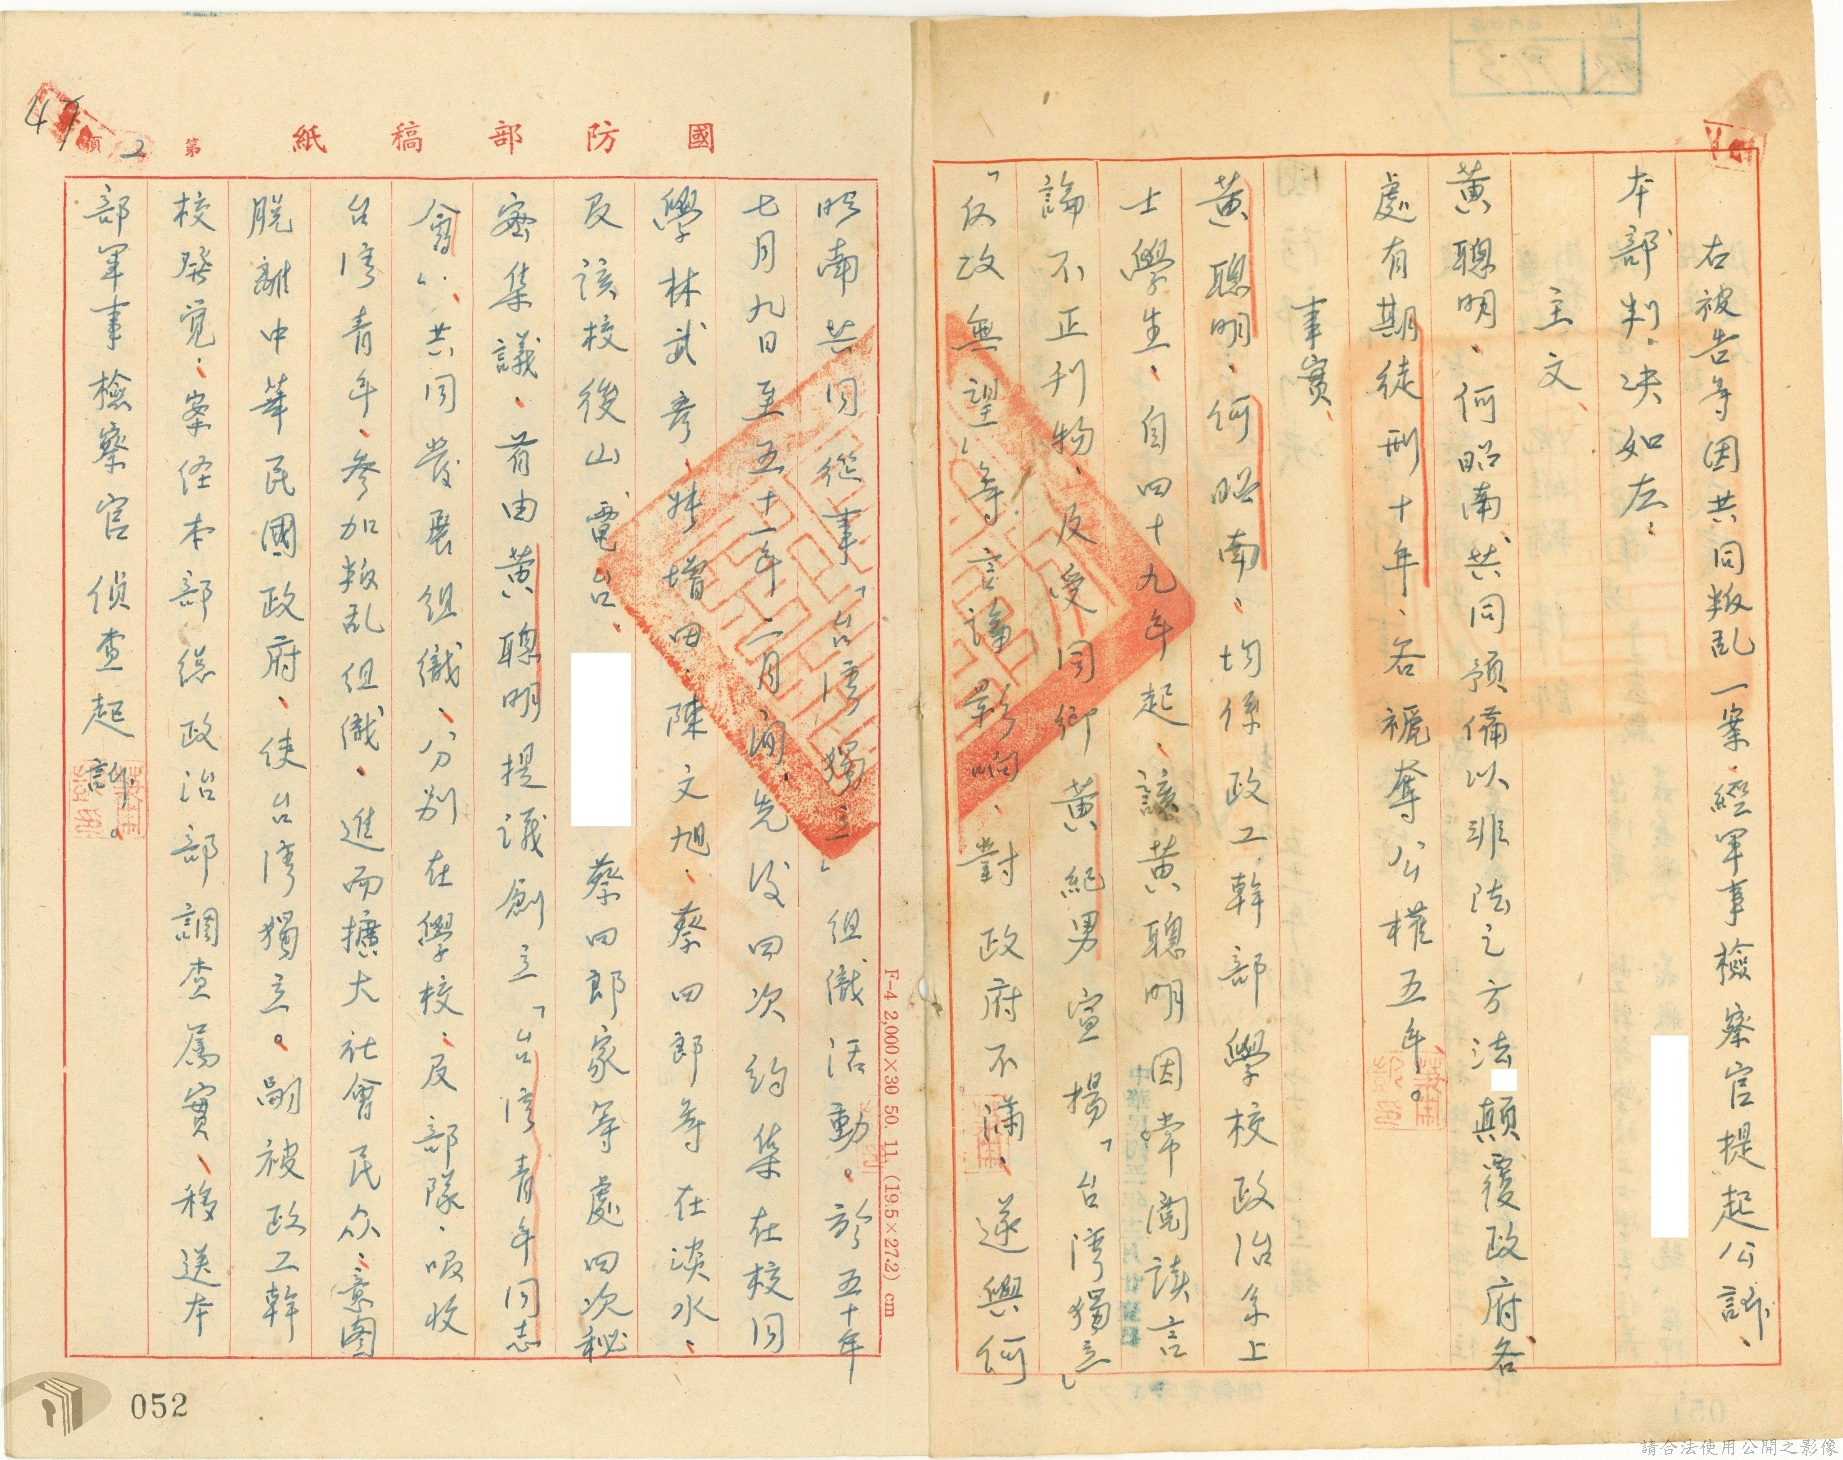 右被告等因共同叛乱一案、經軍事檢察官提起公訴、
本部判決如左：
主文
黃聰明、何昭南、共同預備以非法之方法顛覆政府、各
處有期徒刑十年、各褫奪公權五年。
事實
黃聰明、何昭南、均係政工幹部學校政治系上
士學生、自四十九年起、該黃聰明因常閱讀言
論不正刊物、及受同鄉黃紀男宣揚「台湾獨立」
「反攻無望」等言論影响、對政府不滿、遂與何
昭南共同從事「台湾獨立」組織活動。於五十年
七月九日至五十一年二月間、先後四次約集在校同
學林武彥、增田、陳文旭、蔡四郎等在淡水、
及該校後山、電台、
蔡四郎家等處四次秘
密集議、首由黃聰明提議創立「台湾青年同志
會」、共同發展組織、分别在學校、及部隊、吸收
台湾青年、參加叛乱组織、進而擴大社會民众、意图
脱離中華民國政府、使台湾獨立。嗣被政工幹
校發覚、案经本部總政治部調查屬實、移送本
部軍事檢察官偵查起訴。
國防部稿紙
第2頁
47
F-4 2,000×30 50. 11. (19.5×27.2) cm
052
請合法使用公開之影像